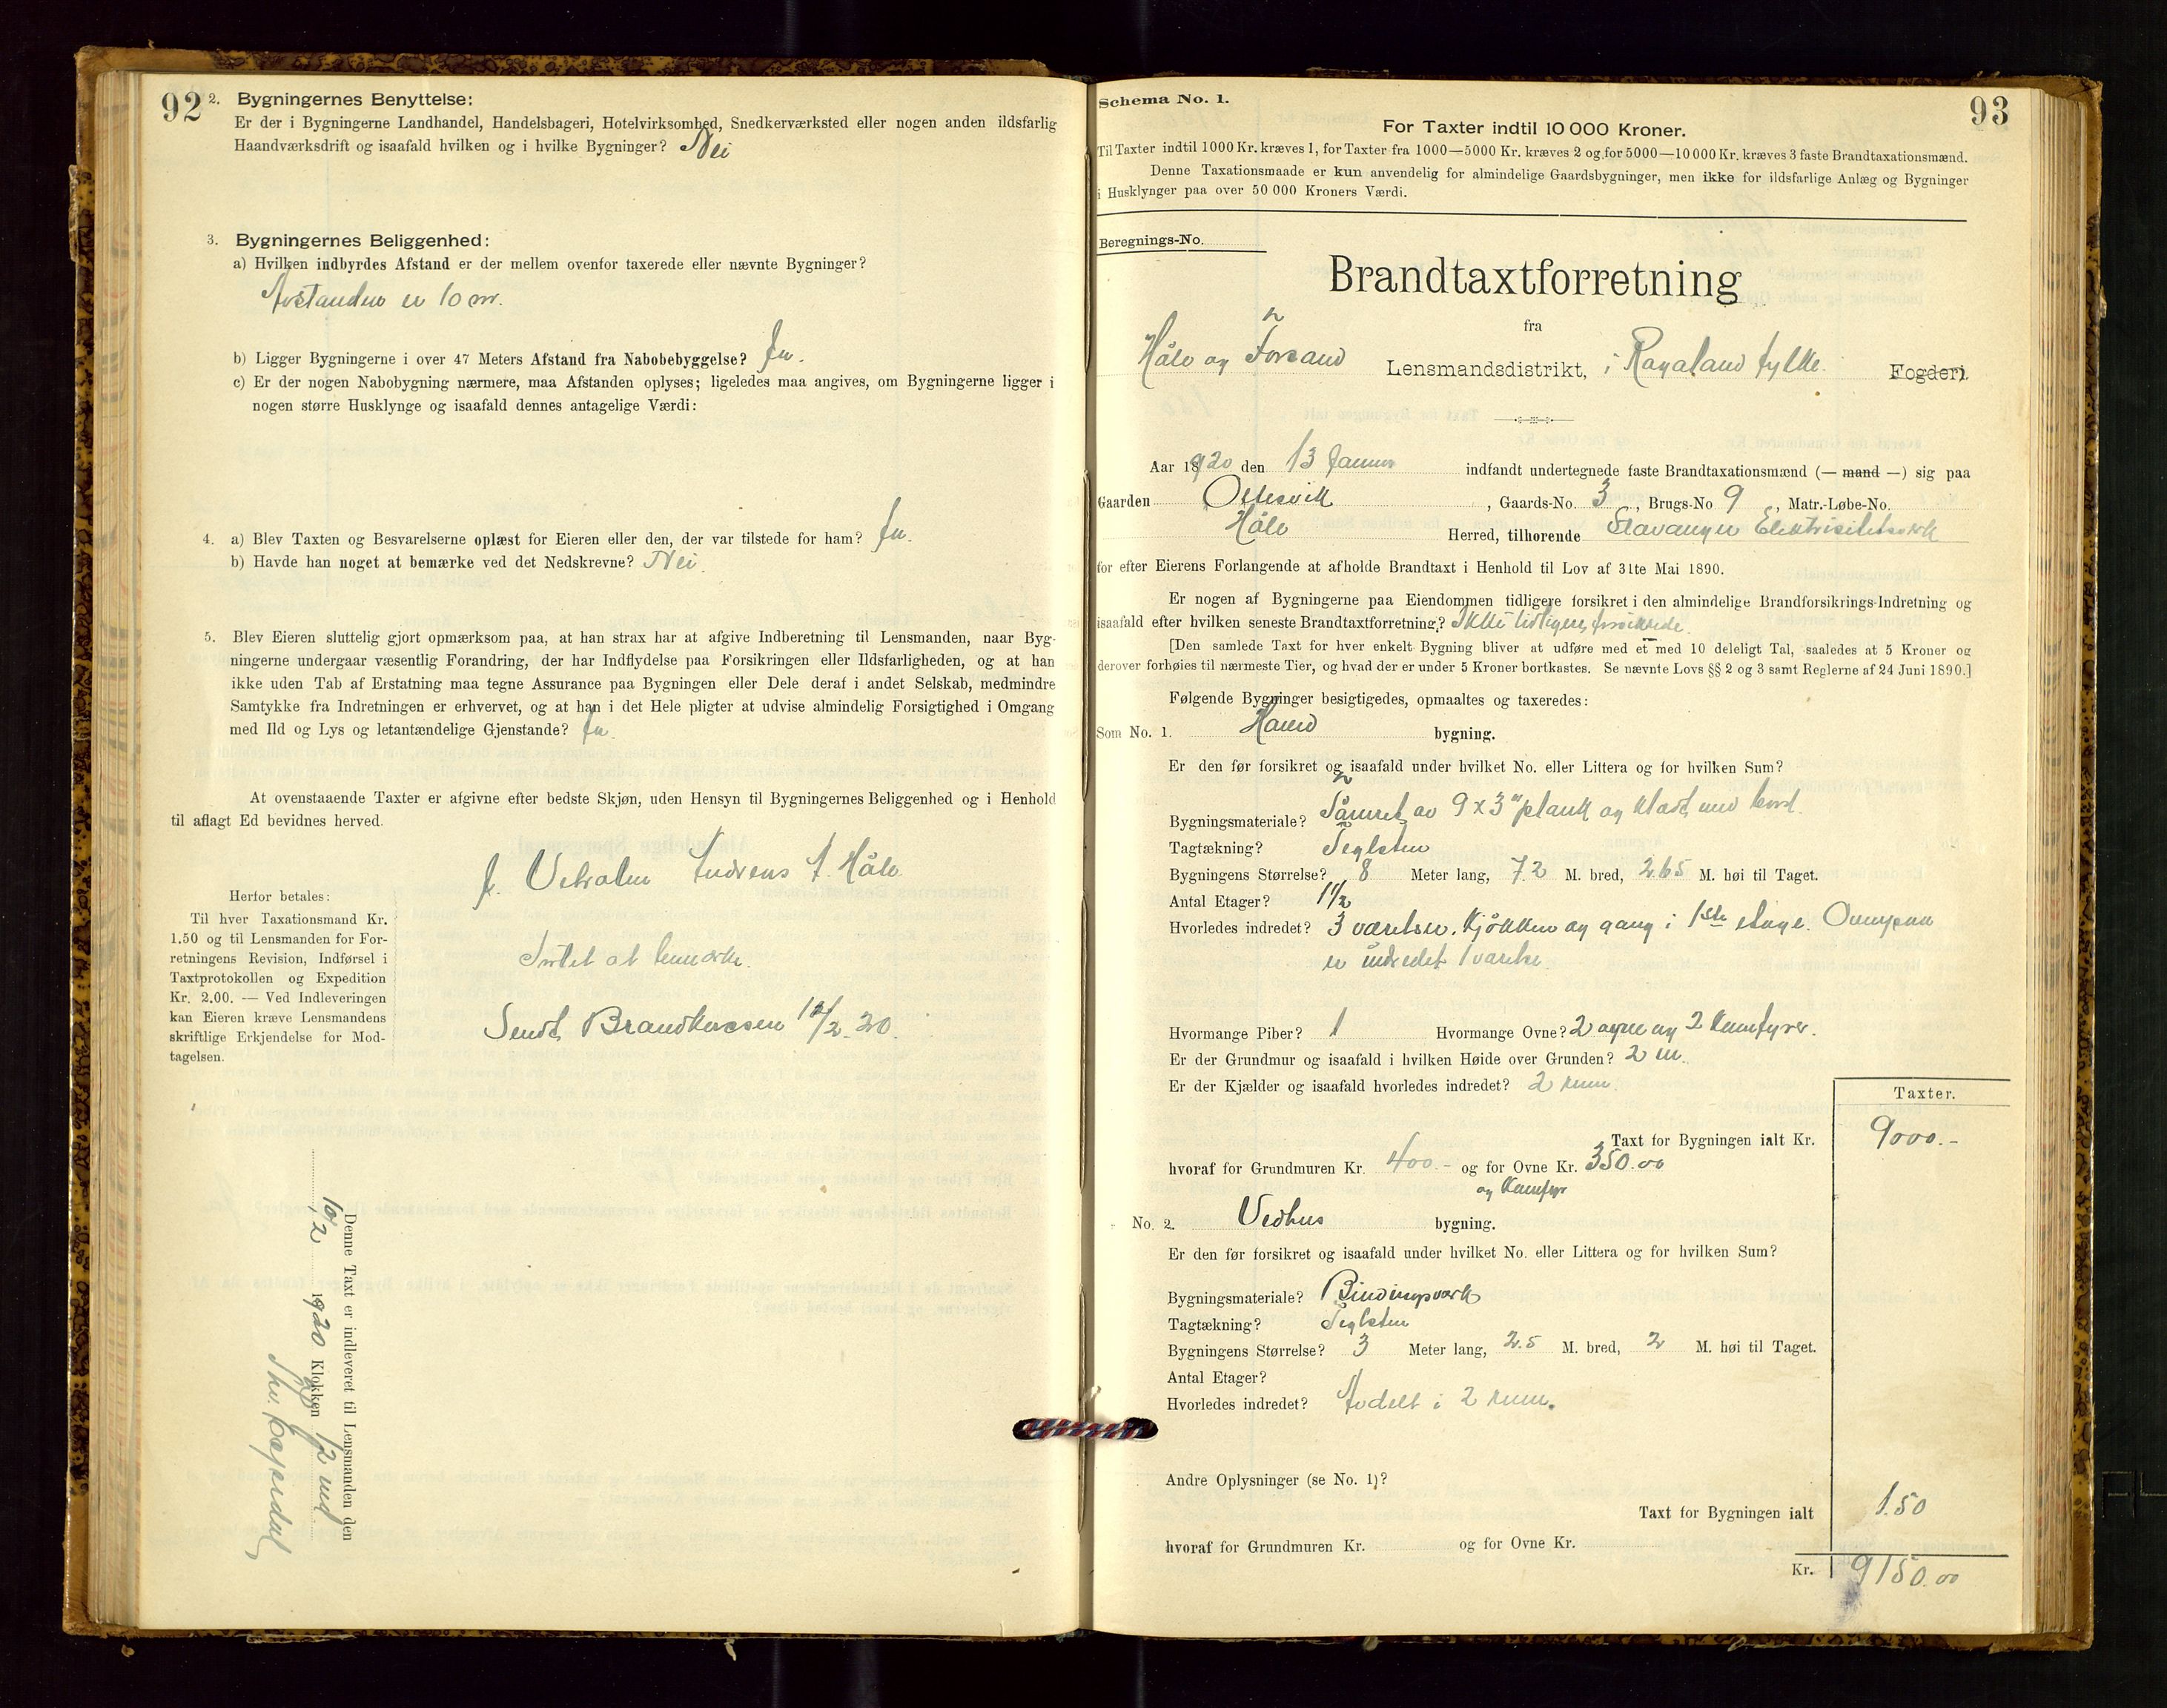 92
2. Bygningernes Benyttelse:
Er der i Bygningerne Landhandel, Handelsbageri, Hotelvirksomhed, Snedkerværksted eller nogen anden ildsfarlig
Haandværksdrift og isaafald hvilken og i hvilke Bygninger? Nei
3. Bygningernes Beliggenhed:
a) Hvilken indbyrdes Afstand er der mellem ovenfor taxerede eller nævnte Bygninger?
Avstanden er 10 m.
b) Ligger Bygningerne i over 47 Meters Afstand fra Nabobebyggelse? Ja.
c) Er der nogen Nabobygning nærmere, maa Afstanden oplyses; ligeledes maa angives, om Bygningerne ligger i
nogen større Husklynge og isaafald dennes antagelige Værdi:
4. a) Blev Taxten og Besvarelserne oplæst for Eieren eller den, der var tilstede for ham? Ja.
b) Havde han noget at bemærke ved det Nedskrevne? Nei.
5. Blev Eieren sluttelig gjort opmærksom paa, at han strax har at afgive Indberetning til Lensmanden, naar Byg-
ningerne undergaar væsentlig Forandring, der har Indflydelse paa Forsikringen eller Ildsfarligheden, og at han
ikke uden Tab af Erstatning maa tegne Assurance paa Bygningen eller Dele deraf i andet Selskab, medmindre
Samtykke fra Indretningen er erhvervet, og at han i det Hele pligter at udvise almindelig Forsigtighed i Omgang
med Ild og Lys og letantændelige Gjenstande? Ja.
At ovenstaaende Taxter er afgivne efter bedste Skjøn, uden Hensyn til Bygningernes Beliggenhed og i Henhold
til aflagt Ed bevidnes herved.
Andreas Håle
Herfor betales:
Til hver Taxationsmand Kr.
1.50 og til Lensmanden for For-
retningens Revision, Indførsel i
Taxtprotokollen og Expedition
Kr. 2.00. — Ved Indleveringen
kan Eieren kræve Lensmandens
skriftlige Erkjendelse for Mod-
tagelsen.
Intet at bemærke.
Sendt Brandkassen /2. 20.
Denne Taxt er indleveret til Lensmanden den
10/2 1920 Klokken 12 md
93
Schema No. 1.
For Taxter indtil 10 000 Kroner.
Til Taxter indtil 1000 Kr. kræves 1, for Taxter fra 1000—5000 Kr. kræves 2 og for 5000—10 000 Kr. kræves 3 faste Brandtaxationsmænd.
Denne Taxationsmaade er kun anvendelig for almindelige Gaardsbygninger, men ikke for ildsfarlige Anlæg og Bygninger
i Husklynger paa over 50 000 Kroners Værdi.
Beregnings-No.
Brandtaxtforretning
fra
Håle og Forsand Lensmandsdistrikt, i Rogaland fylke. Fogderi.
Aar 1920 den 13 Januar indfandt undertegnede faste Brandtaxationsmænd (— mand —) sig paa
Gaarden Oltesvik, Gaards-No. 3, Brugs-No 9, Matr.-Løbe-No.
Håle Herred, tilhørende Stavanger Elektrisitetsverk
for efter Eierens Forlangende at afholde Brandtaxt i Henhold til Lov af 31te Mai 1890.
Er nogen af Bygningerne paa Eiendommen tidligere forsikret i den almindelige Brandforsikrings-Indretning og
isaafald efter hvilken seneste Brandtaxtforretning? Ikke tidligere forsikrede.
[Den samlede Taxt for hver enkelt Bygning bliver at udføre med et med 10 deleligt Tal, saaledes at 5 Kroner og
derover forhøies til nærmeste Tier, og hvad der er under 5 Kroner bortkastes. Se nævnte Lovs §§ 2 og 3 samt Reglerne af 24 Juni 1890.]
Følgende Bygninger besigtigedes, opmaaltes og taxeredes:
Som No. 1. Haand bygning.
Er den før forsikret og isaafald under hvilket No. eller Littera og for hvilken Sum?
Bygningsmateriale? Tømret av 9 x 3" plank og klædt med bord.
Tagtækning? Teglsten
Bygningens Størrelse? 8 Meter lang, 7.2 M. bred, 2.65 M. høi til Taget.
Antal Etager? 1 1/2
Hvorledes indredet? 3 værelser. Kjøkken og gang i 1ste etage. Ovenpaa
er indredet 1 værelse.
Hvormange Piber? 1 Hvormange Ovne? 2 ovne og 2 komfyrer.
Er der Grundmur og isaafald i hvilken Høide over Grunden? 2 m.
Er der Kjælder og isaafald hvorledes indredet? 2 rum.
Taxter.
Taxt for Bygningen ialt Kr. 9000.-
hvoraf for Grundmuren Kr. 400.- og for Ovne Kr. 350.00
og Komfyr
No. 2. Vedhus bygning.
Er den før forsikret og isaafald under hvilket No. eller Littera og for hvilken Sum?
Bygningsmateriale? Bindingsværk
Tagtækning? Teglsten
Bygningens Størrelse? 3 Meter lang, 2.5 M. bred, 2 M. høi til Taget.
Antal Etager?
Hvorledes indredet? Avdelt i 2 rum.
Andre Oplysninger (se No. 1)?
Taxt for Bygningen ialt 150
hvoraf for Grundmuren Kr. og for Ovne Kr.
Kr. 9150.00